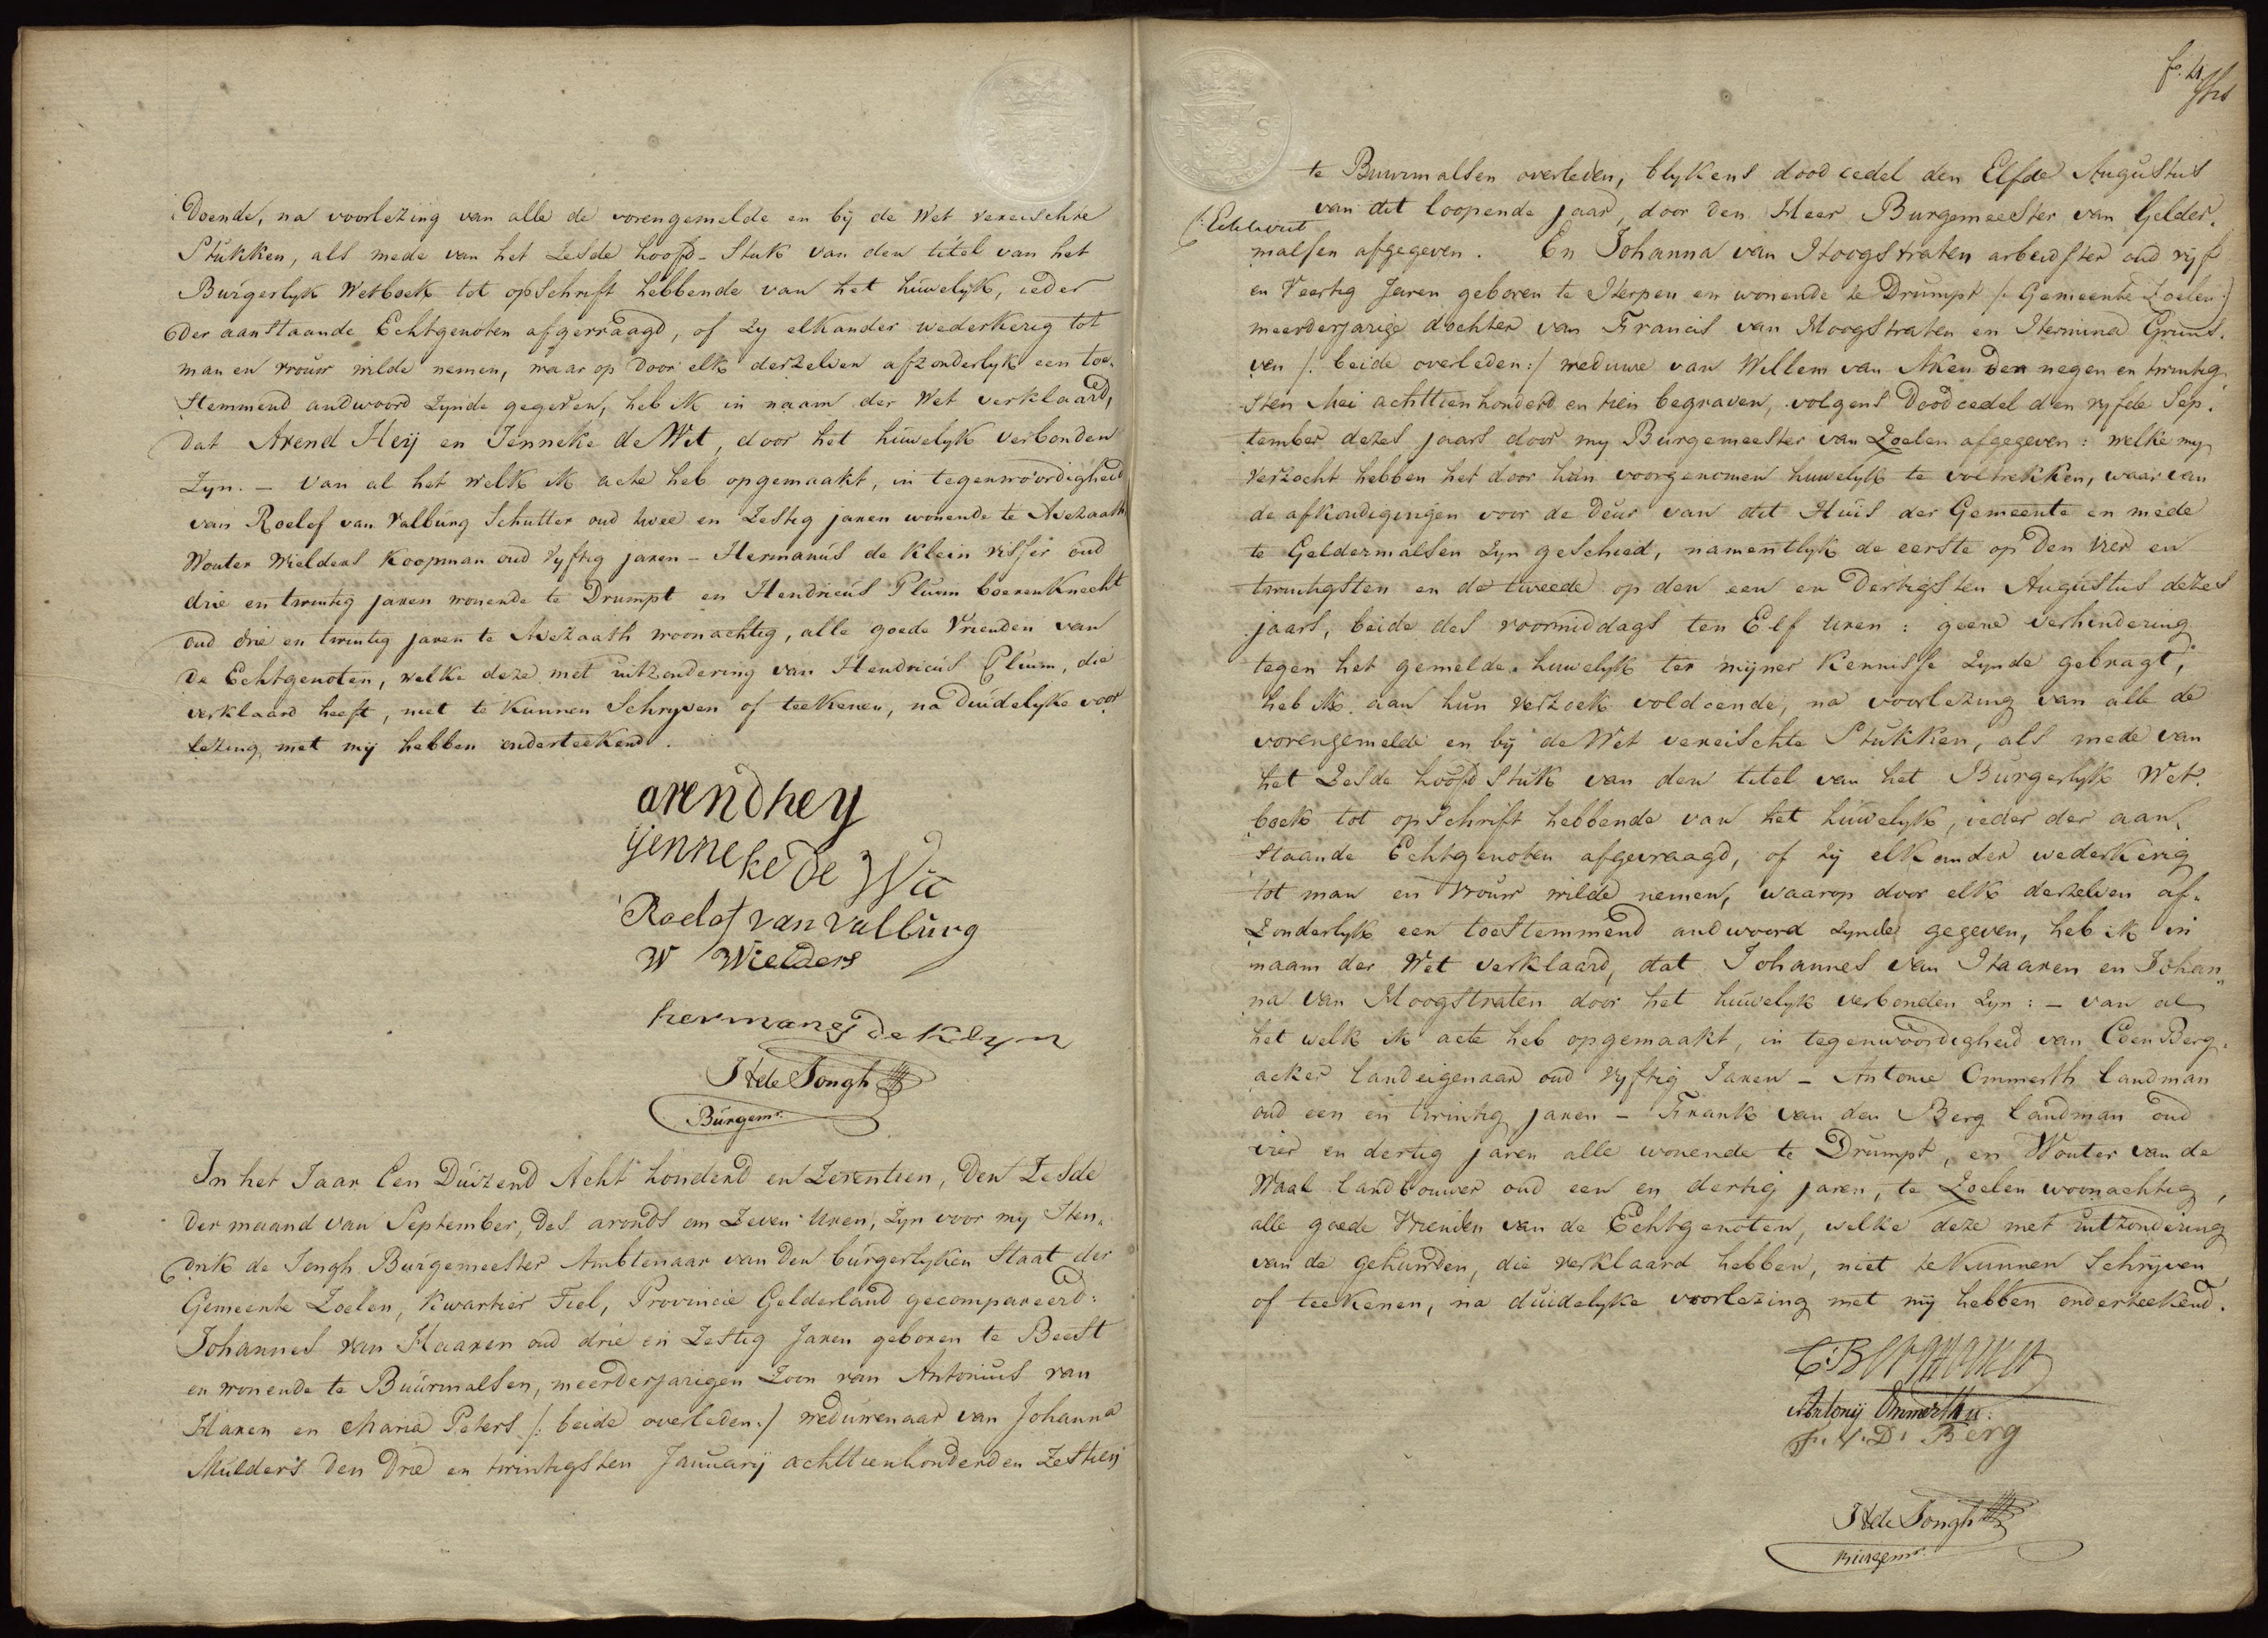 Doende, na voorlezing van alle de vorengemelde en bij de Wet vereischte
Stukken, als mede van het Zesde hoofd-Stuk van den titel van het
Burgerlyk Wetboek tot opschrift hebbende van het huwelyk, ieder
der aanstaande Echtgenoten afgevraagd, of Zy elkander wederkerig tot
man en vrouw wilde nemen, waar op door elk derzelven afzonderlyk een toe-
stemmend andwoord Zynde gegeven, heb ik in naam der Wet verklaard,
dat Arend Heij en Jenneke de Wit, door het huwelyk verbonden
Zyn. – Van al het welk ik acte heb opgemaakt, in tegenwoordigheid
van Roelof van Valburg Schutter oud twee en Zestig jaren wonende te Avezaath
Wouter Wielders Koopman oud Vyftig jaren – Hermanus de Klein visser oud
drie en twintig jaren wonende te Drumpt en Hendricus Pluim boerenknecht
oud drie en twintig jaren te Avezaath woonachtig, alle goede Vrienden van
de Echtgenoten, welke deze met uitzondering van Hendricus Pluim, die
verklaard heeft, niet te kunnen Schryven of teekenen, na duidelyke voor
lezing met mij hebben onderteekend.
arend hey
Jenneke de Wit
Roelof van valburg
W Wielders
hermanes de Klyn
H de Jongh
Burgemr.
In het Jaar Een Duizend Acht honderd en Zeventien, den Zesde
der maand van September, des avonds om Zeven uren, Zyn voor my Hen-
drik de Jongh Burgemeester Ambtenaar van den burgerlyken Staat der
Gemeente Zoelen, Kwartier Tiel, Provincie Gelderland gecompareerd:
Johannes van Haaren oud drie en Zestig Jaren geboren te Beest
en wonende te Buurmalsen, meerderjarigen Zoon van Antonius van
Haren en Maria Peters /: beide overleden :/ weduwenaar van Johanna
Mulders den drie en twintigsten January achttienhonderd en Zestien
fo. 4.
te Buurmalsen overleden, blykens dood cedel den Elfde Augustus
van dit loopende jaar, door den Heer Burgemeester van Gelder-
malsen afgegeven. En Johanna van Hoogstraten arbeidster oud vyf
en Veertig Jaren geboren te Herpen en wonende te Drumpt /: Gemeente Zoelen :/
meerderjarige dochter van Francis van Hoogstraten en Hermina
ven /: beide overleden :/ weduwe van Willem van Aken den negen en twintig-
sten Mei achttienhonderd en tien begraven, volgens Doodcedel den vyfde Sep-
tember dezes jaars door my Burgemeester van Zoelen afgegeven: welke my
verzocht hebben het door hun voorgenomen huwelyk te voltrekken, waar van
de afkondigingen voor de deur van dit Huis der Gemeente en mede
te Geldermalsen Zyn geschied, namentlyk de eerste op den vier en
twintigsten en de tweede op den een en dertigsten Augustus dezes
jaars, beide des voormiddags ten Elf uren: geene verhindering
tegen het gemelde huwelyk ter mijner kennisse Zynde gebragt;
heb ik aan hun verzoek voldoende, na voorlezing van alle de
vorengemelde en bij de Wet vereischte Stukken, als mede van
het Zesde hoofd Stuk van den titel van het Burgerlyk Wet-
boek tot opschrift hebbende van het huwelyk, ieder der aan-
staande Echtgenoten afgevraagd, of Zy elkander wederkerig
tot man en vrouw wilde nemen, waarop door elk derzelven af-
Zonderlyk een toestemmend andwoord Zynde gegeven, heb ik in
naam der Wet verklaard, dat Johannes van Haaren en Johan-
na van Hoogstraten door het huwelyk verbonden Zyn: – van al
het welk ik acte heb opgemaakt, in tegenwoordigheid van Coen Berg-
acker landeigenaar oud Vyftig Jaren – Antonie Ommerth landman
oud een en twintig jaren – Frank van den Berg landman oud
vier en dertig jaren alle wonende te Drumpt, en Wouter van de
Waal landbouwer oud een en dertig jaren, te Zoelen woonachtig,
alle goede Vrienden van de Echtgenoten, welke deze met uitzondering
van de gehuwden, die verklaard hebben, niet te kunnen Schryven
of teekenen, na duidelyke voorlezing met mij hebben onderteekend.
C: Bergacker
Antonij
F. V. D. Berg
H de Jongh
Burgemr.